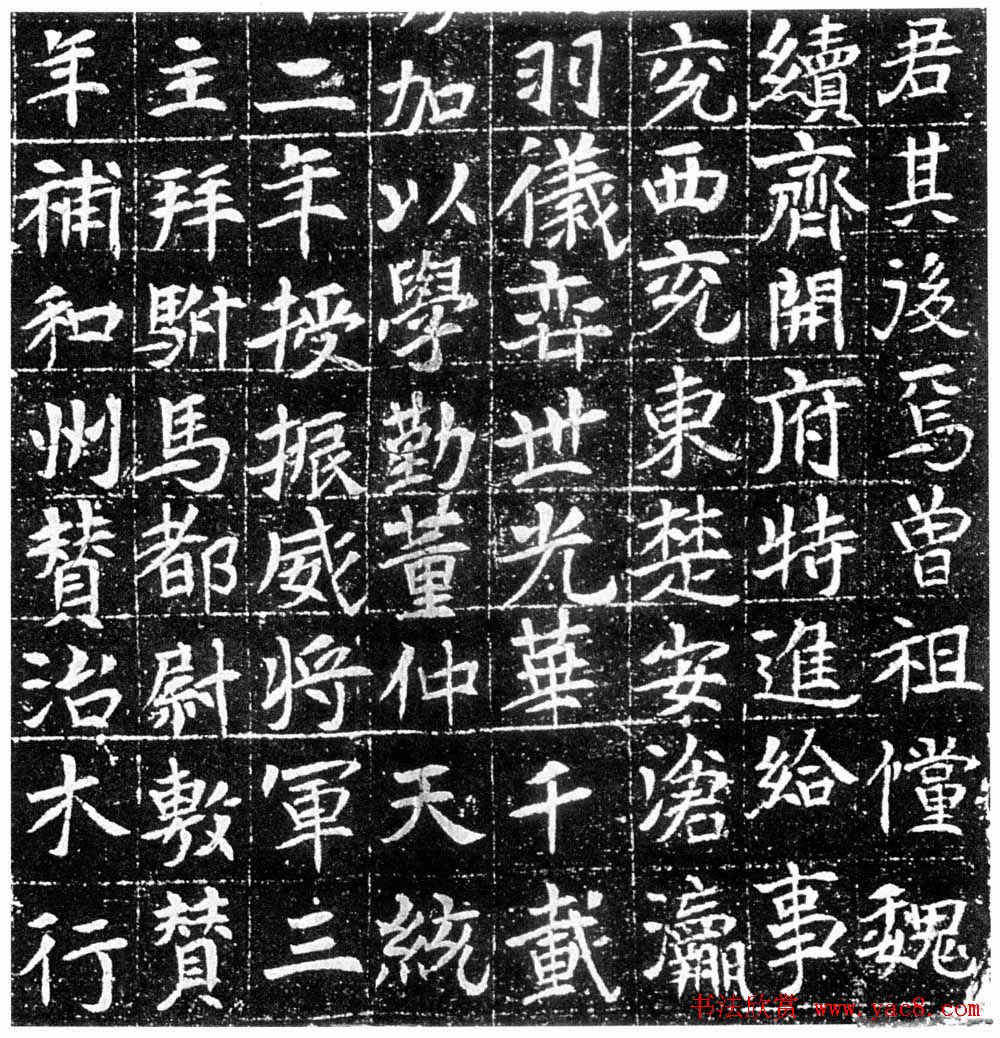 君其後焉曾祖儻魏
續齊開府特進給事
兖西兖東楚安滄瀛
羽儀弈世光華千載
加以學勤董仲天統
二年授振威将軍三
主拜駙馬都尉敷賛
年補和州賛治木行
书法欣赏 www.yac8.com